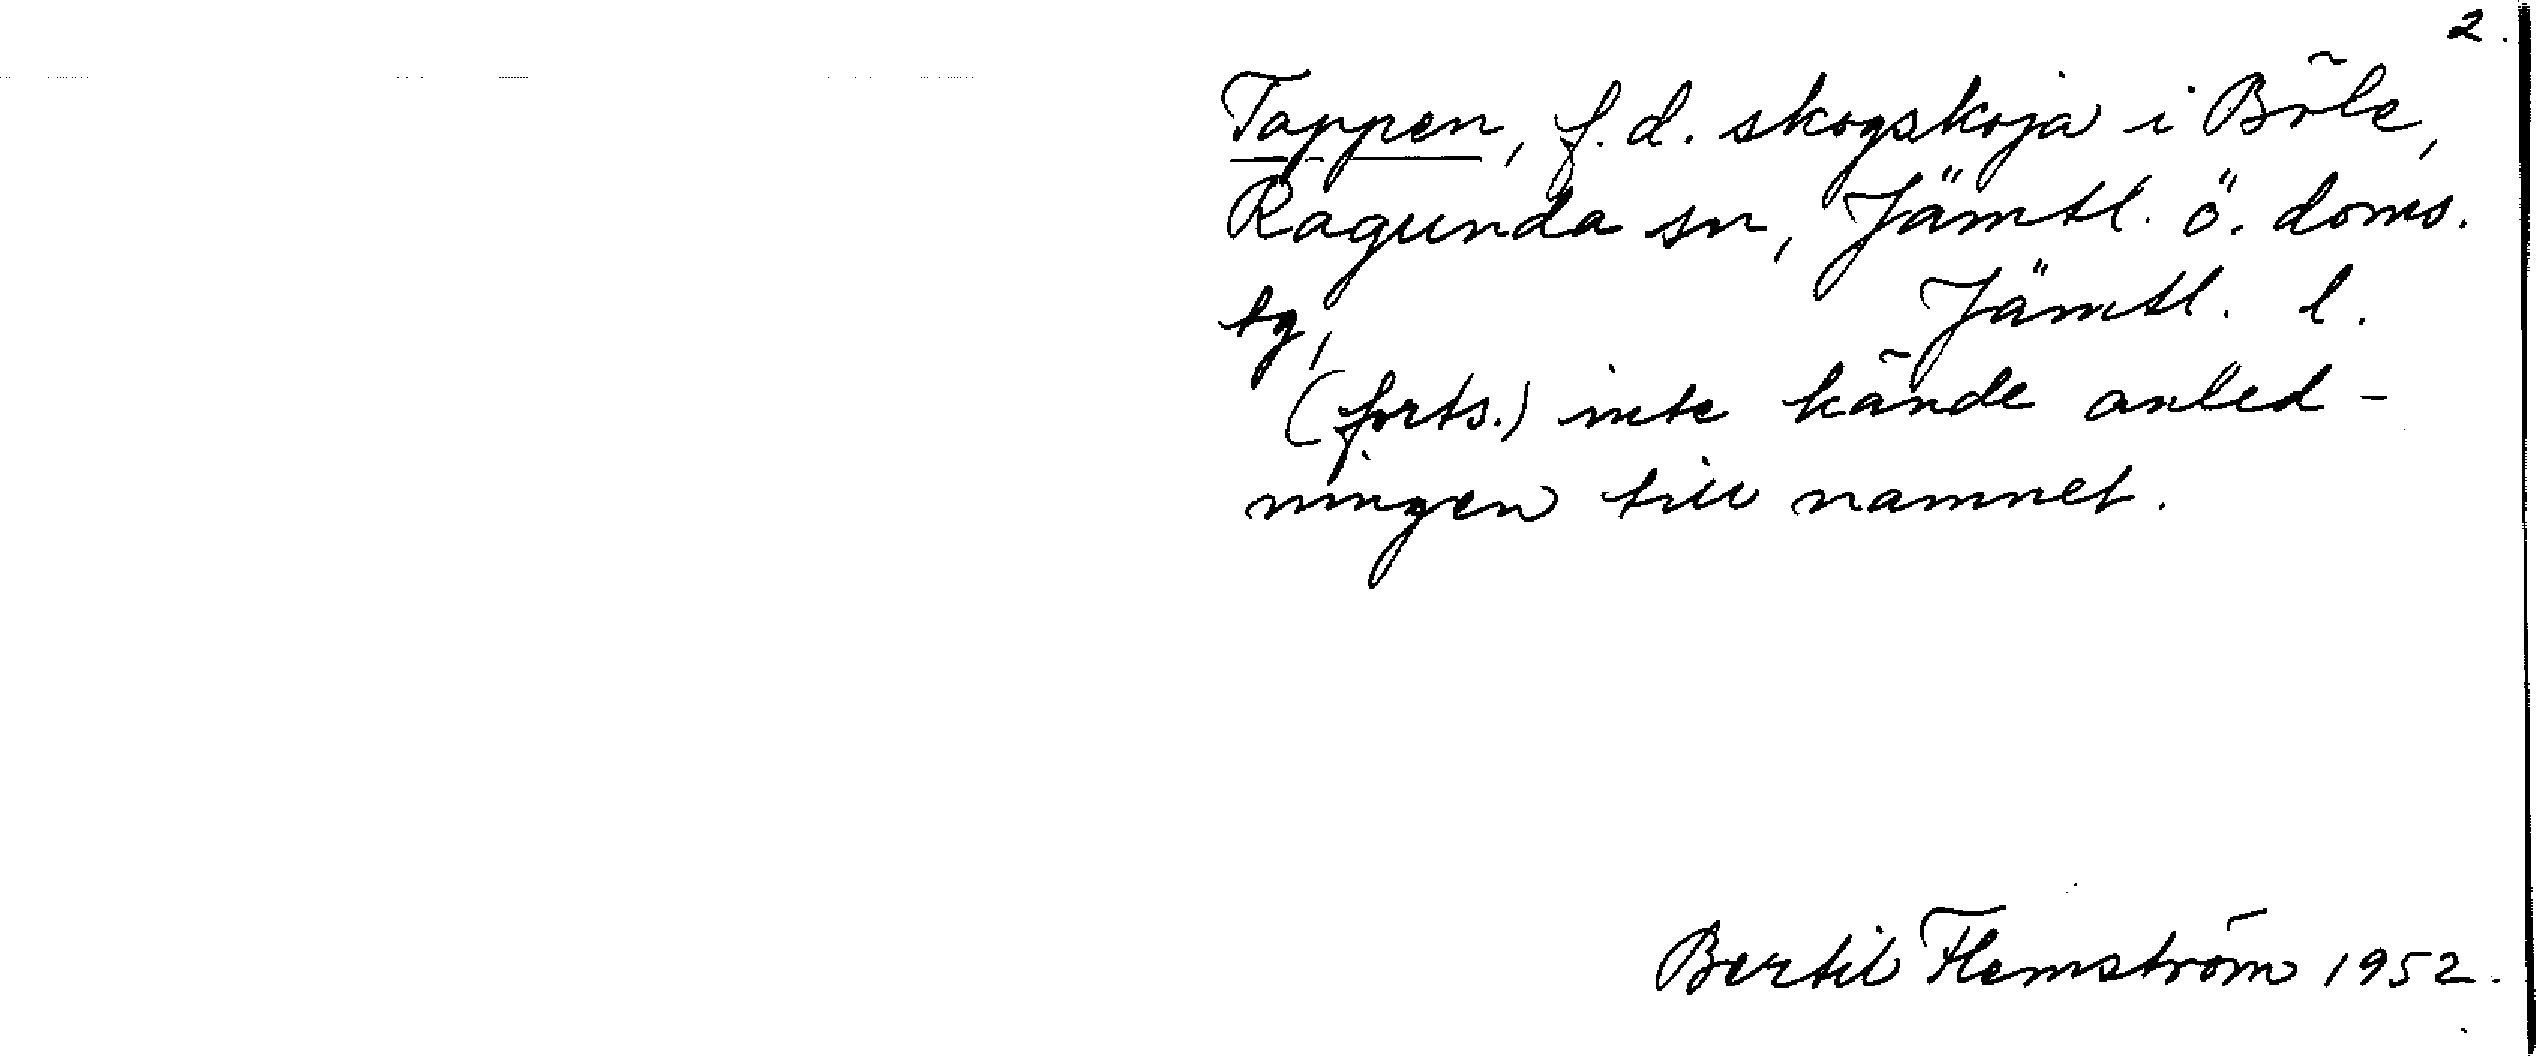 2.
Tappen, f.d. skogskoja i Böle,
Ragunda sn, Jämtl. ö. doms.
tg, Jämtl. l.
(forts.) inte kände anled-
ningen till namnet.
Bertil Flemström 1952.